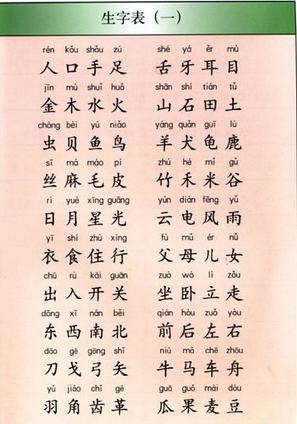 生字表（一）
rén kǒu shǒu zú shé yá ěr mù
人口手足 舌牙耳目
jīn mù shuǐ huǒ shān shí tián tǔ
金木水火 山石田土
chóng bèi yú niǎo yáng quǎn guī lù
虫贝鱼鸟 羊犬龟鹿
sī má máo pí zhú hé mǐ gǔ
丝麻毛皮 竹禾米谷
rì yuè xīng guāng yún diàn fēng yǔ
日月星光 云电风雨
yī shí zhù xíng fù mǔ ér nǚ
衣食住行 父母儿女
chū rù kāi guān zuò wò lì zǒu
出入开关 坐卧立走
dōng xī nán běi qián hòu zuǒ yòu
东西南北 前后左右
dāo gē gōng shǐ niú mǎ chē zhōu
刀戈弓矢 牛马车舟
yǔ jiǎo chǐ gé guā guǒ mài dòu
羽角齿革 瓜果麦豆